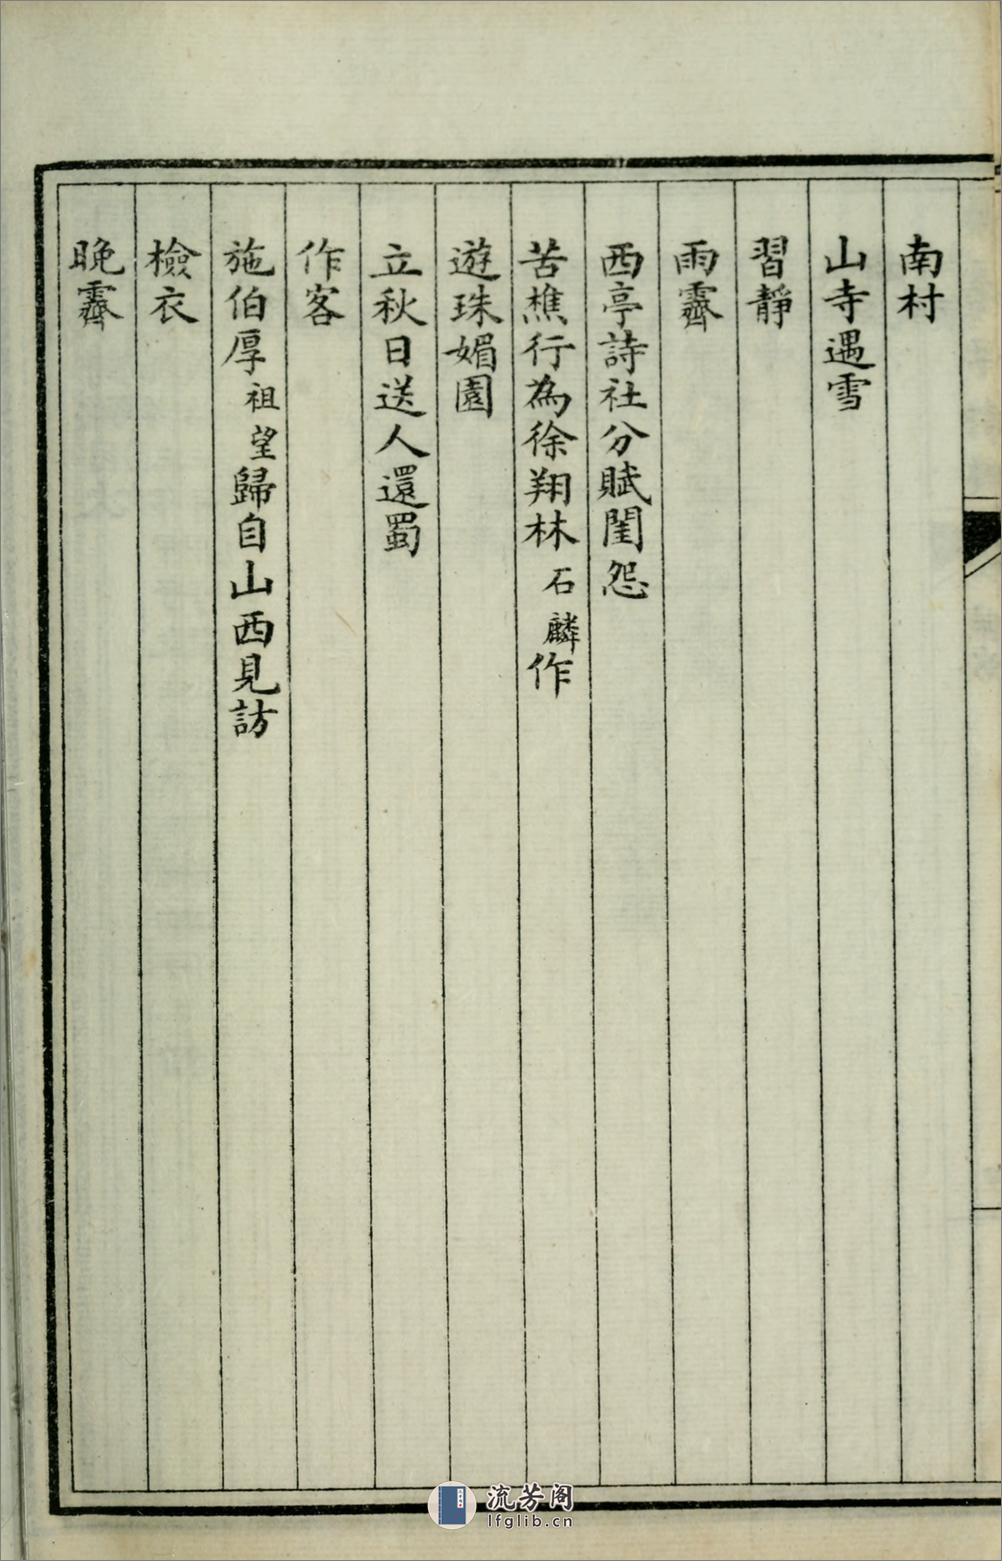 南村
山寺遇雪
習靜
雨霽
西亭詩社分賦閨怨
苦樵行為徐翔林石麟作
遊珠媚園
立秋日送人還蜀
作客
施伯厚祖望歸自山西見訪
檢衣
晚霽
流芳阁
lfglib.cn